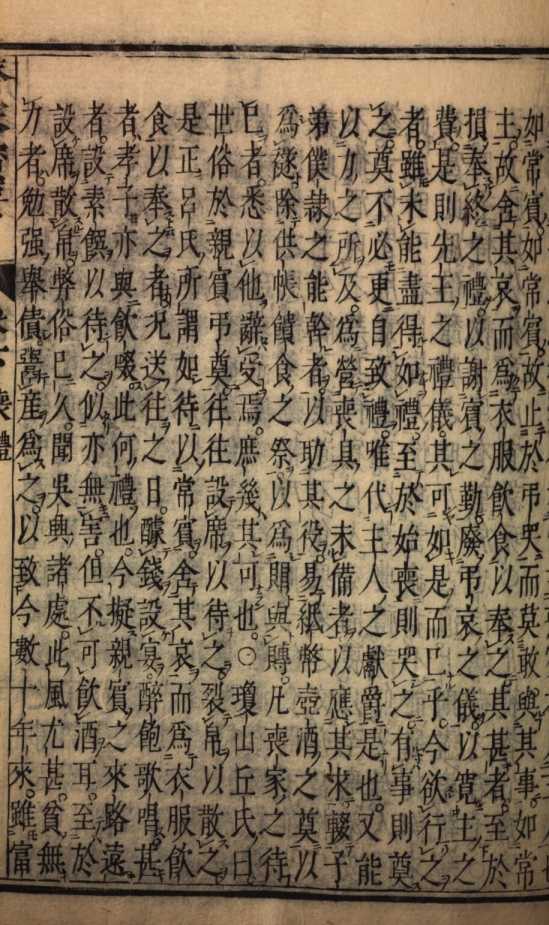 如常賓如常賓故止於弔哭而莫敢與其事如常
主故舍其哀而爲衣服飲食以奉之其甚者至於
損奉終之禮以謝賓之勤廢弔哀之儀以寬主之
費是則先王之禮儀其可如是而已乎今欲行之
者雖未能盡得如禮至於始喪則哭之有事則奠
之奠不必更自致禮唯代主人之獻爵是也又能
以力之所及爲營喪具之未備者以應其求輟子
弟僕隸之能幹者以助其役易紙幣壺酒之奠以
爲襚除供帳饋食之祭以爲賵與賻凡喪家之待
己者悉以他辭受焉庶幾其可也○瓊山丘氏曰
世俗於親賓弔奠往往設席以待之裂帛以散之
是正呂氏所謂如待以常賓舍其哀而爲衣服飲
食以奉之者況送往之日醵錢設宴醉飽歌唱甚
者孝子亦與飲啜此何禮也今擬親賓之來路遠
者設素饌以待之似亦無害但不可飲酒耳至於
設席散帛弊俗已久聞吳興諸處此風尤甚貧無
力者勉强舉債鬻産爲之以致今數十年來雖富
喪禮